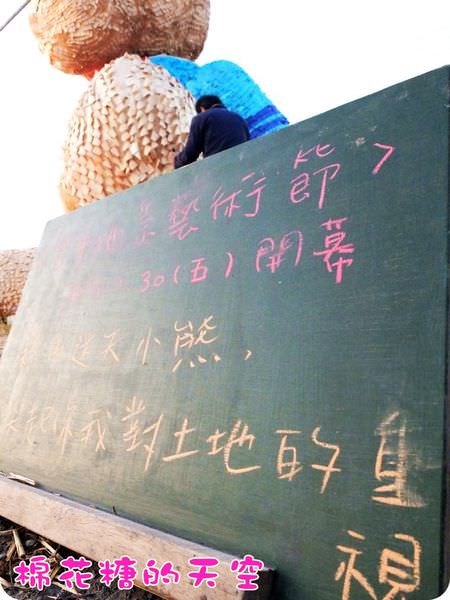 地景藝術節>
30(五)開幕
天小熊,
你我對土地的重
視
棉花糖的天空